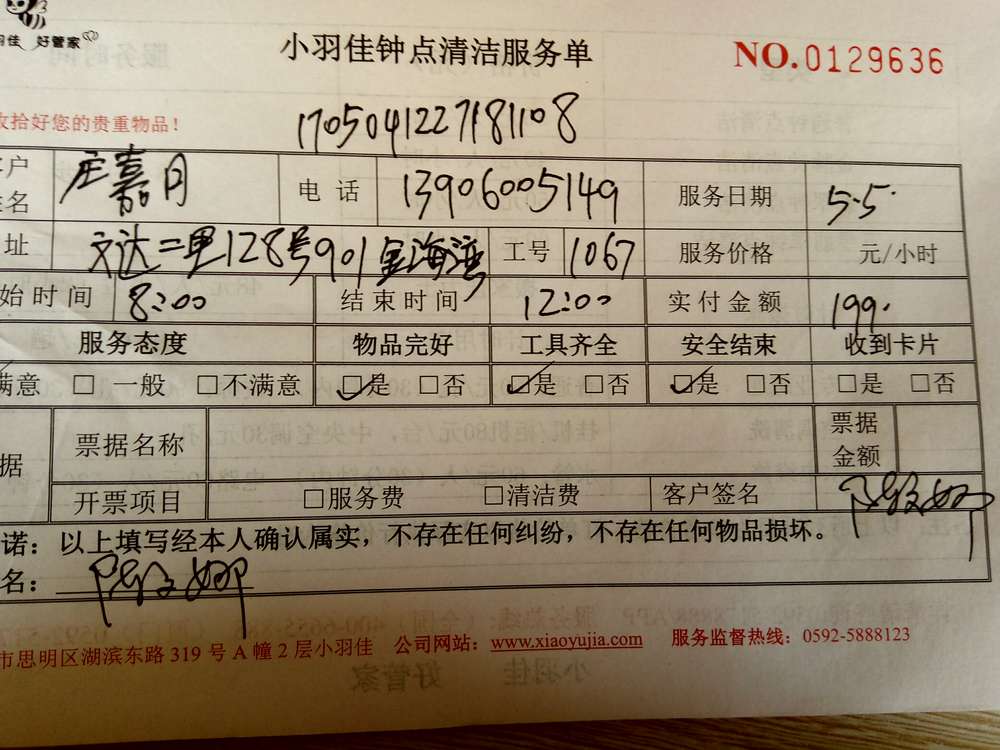 羽佳 好管家
小羽佳钟点清洁服务单 NO.0129636
收拾好您的贵重物品!
1705041227181108
客户姓名 庄嘉月 电话 13906005149 服务日期 5.5.
址 文达二里128号901金海湾 工号 1067 服务价格 元/小时
始时间 8:00 结束时间 12:00 实付金额 199.
服务态度 物品完好 工具齐全 安全结束 收到卡片
满意 □一般 □不满意 ☑是 □否 ☑是 □否 ☑是 □否 □是 □否
据 票据名称 票据金额
开票项目 □服务费 □清洁费 客户签名
诺:以上填写经本人确认属实,不存在任何纠纷,不存在任何物品损坏。
名:
市思明区湖滨东路319号A幢2层小羽佳 公司网站:www.xiaoyujia.com 服务监督热线:0592-5888123